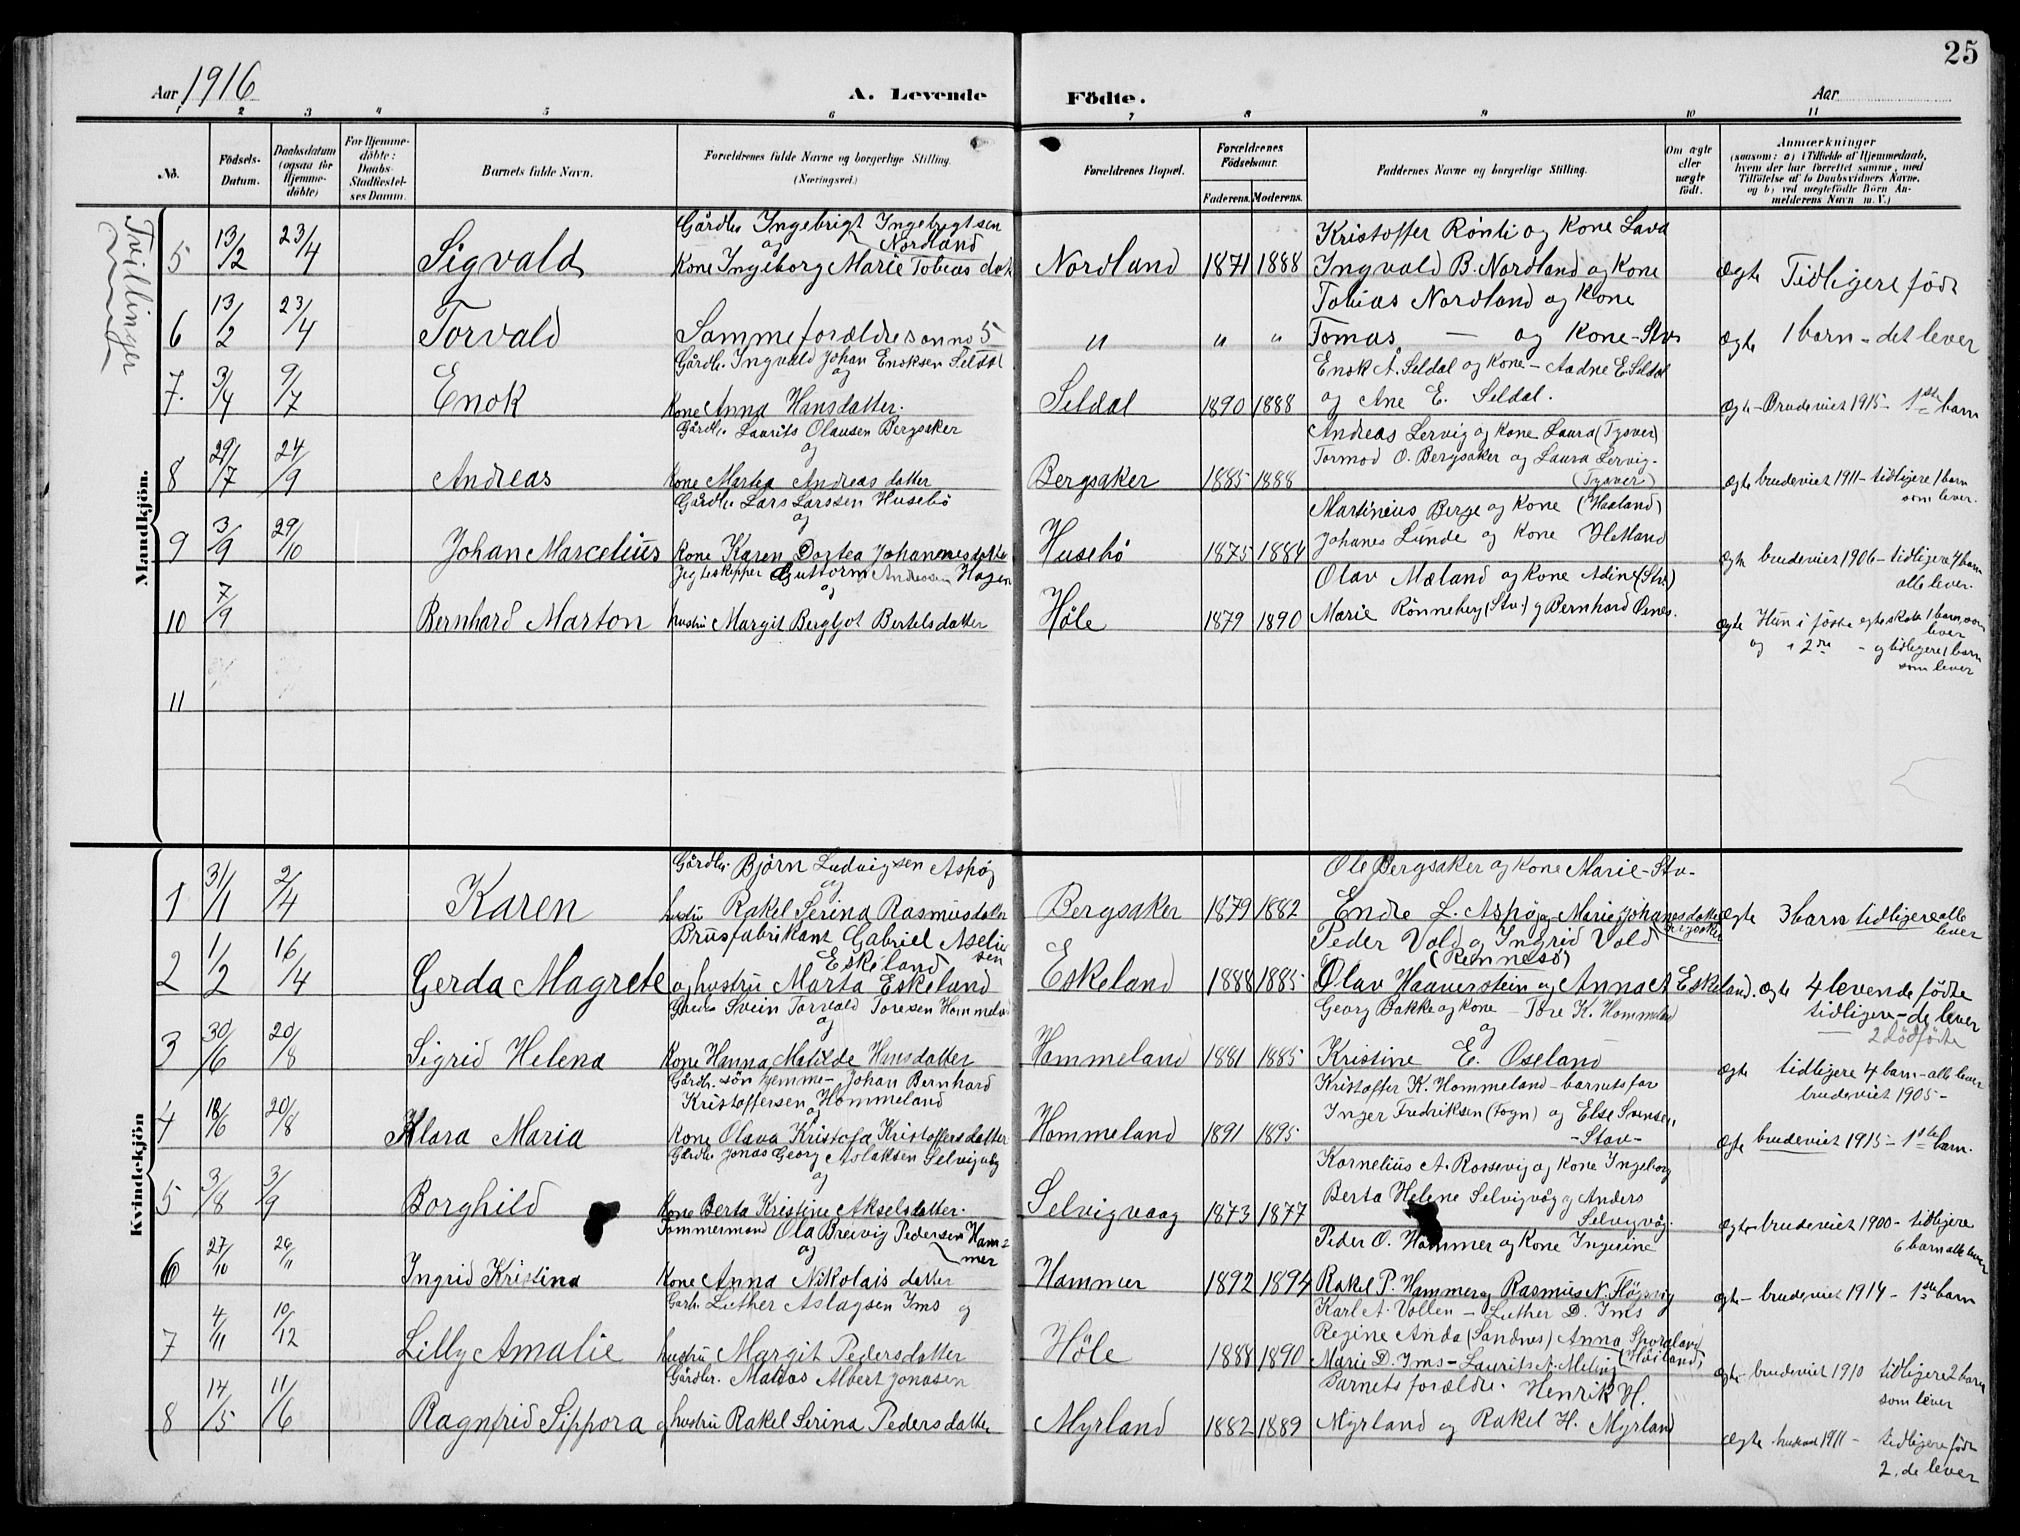 25
Aar 1916
A. Levende Födte.
Aar
1 2 3 4 5 6 7 8 9 10 11
No.
Födsels-Datum.
Daabsdatum (ogsaa for Hjemmedöbte)
For Hjemmedöbte: Daabs-Stadfæstelses Datum.
Barnets fulde Navn.
Forældrenes fulde Navne og borgerlige Stilling. (Næringsvei.)
Forældrenes Bopæl.
Forældrenes Födselsaar.
Faderens. Moderens.
Faddernes Navne og borgerlige Stilling.
Om ægte eller uægte født.
Anmærkninger
(saasom: a) i Tilfælde af Hjemmedaab, hvem der har forrettet samme, med Tilföielse af to Daabsvidners Navne, og b) ved uægtefødte Börn Anmelderens Navn m. V.)
Tvillinger
Mandkjön.
5 13/2 23/4 Sigvald Gårdbr. Ingebrigt Ingebrigtsen Nordland og Kone Ingeborg Marie Tobias dat Nordland 1871 1888 Kristoffer Rönti og Kone Lava Ingvald B. Nordland og Kone ægte Tidligere födt
6 13/2 23/4 Torvald Samme forældre som no 5 " " " Tobias Nordland og Kone Tomas — og Kone - Stv ægte 1 barn - det lever
7. 3/4 9/7 Enok Gårdbr. Ingvald Johan Enoksen Seldal og Kone Anna Hansdatter. Seldal 1890 1888 Enok A. Seldal og Kone - Aadne E Seldal og Ane E. Seldal. ægte - Brudeviet 1915 - 1ste barn
8 29/7 24/9 Andreas Gårdbr. Laurits Olausen Bergsaker og Kone Martea Andreas datter Bergsaker 1885 1888 Andreas Lervig og Kone Laura (Tysver) Tormod O. Bergsaker og Laura Lervig. (Tysver) ægte brudeviet 1911 - tidligere 1 barn som lever.
9 3/9 29/10 Johan Marcelius Gårdbr Lars Larssen Husebö og Kone Karen Dortea Johannesdatter Husebö 1875 1884 Martineus Berge og Kone (Hauland) Johanes Lunde og Kone Hetland ægte brudeviet 1906 - tidligere 4 barn alle lever.
10 7/9 Bernhard Marton Jegteskipper Guttorm Andersen Hagen og hustru Margit Bergljot Bertelsdatter Höle 1879 1890 Olav Mæland og Kone Adine (Stv) Marie Rönneberg (Stv.) og Bernhard Osnes. ægte Hun i förste egteskab 1 barn som lever og i 2dre - og tidligere 1 barn som lever
11
Kvindekjön
1 31/1 2/4 Karen Gårdbr. Björn Ludvigsen Aspöy og hustru Rakel Serina Rasmusdatter Bergsaker 1879 1882 Ole Bergsaker og Kone Marie - Stv - Endre L. Aspö og Marie Johanesdatter Bergsaker ægte 3 barn tidligere alle lever
2 1/2 16/4 Gerda Magrete Brusfabrikant Gabriel Aseliussen Eskeland og hustru Marta Eskeland Eskeland 1888 1885 Peder Vold og Ingrid Vold (Rennesö) Olav Haaverstein og Anna A Eskeland. ægte 4 levende födte tidligere - de lever 2 dödfödte
3 30/6 20/8 Sigrid Helena Gårdbr Svein Torvald Toresen Hommeland og Kone Hanna Matilde Hansdatter Hommeland 1881 1885 Georg Bakke og Kone - Tore K. Hommeland og Kristine E. Oseland ægte tidligere 4 barn - alle lever brudeviet 1905 -
4 18/6 20/8 Klara Maria Gårdbr. sön hjemme - Johan Bernhard Kristoffersen Hommeland og Kone Olava Kristofa Kristoffersdatter Hommeland 1891 1895 Kristoffer K. Hommeland - barnets far Inger Fredriksen (Fogn) og Else Svensen - Stav - ægte brudeviet 1915 - 1ste barn.
5 3/8 3/9 Borghild Gårdbr Jonas Georg Aslaksen Selvigvåg og Kone Berta Kristine Akselsdatter. Selvigvaag 1873 1877 Kornelius A. Rossevig og Kone Ingeborg Berta Helene Selvigvåg og Anders Selvigvåg. ægte brudeviet 1900 - tidligere 6 barn alle lever
6 27/10 26/11 Ingrid Kristina Tömmermand Ola Breivig Pedersen Hammer og Kone Anna Nikolais datter Hammer 1892 1894 Peder O. Hammer og Kone Ingerine Rakel P. Hammer og Rasmus N. Högsvig ægte - brudeviet 1914 - 1ste barn
7 4/11 10/12 Lilly Amalie Garbr. Luther Aslagsen Ims og hustru Margit Pedersdatter Höle 1888 1890 Karl A. Vollen - Luther D. Ims Regine Anda (Sandnes) Anna Sporaland (Höiland) Marie D. Ims - Laurits A. Meling ægte brudeviet 1910 tidligere 2 barn som lever
8 14/5 11/6 Ragnfrid Sippora Gårdbr. Matias Albert Jonasen og hustru Rakel Serina Pedersdatter Myrland 1882 1889 Barnets forældre. Henrik H. Myrland og Rakel H. Myrland ægte brudeviet 1911 - tidligere födt 2. de lever